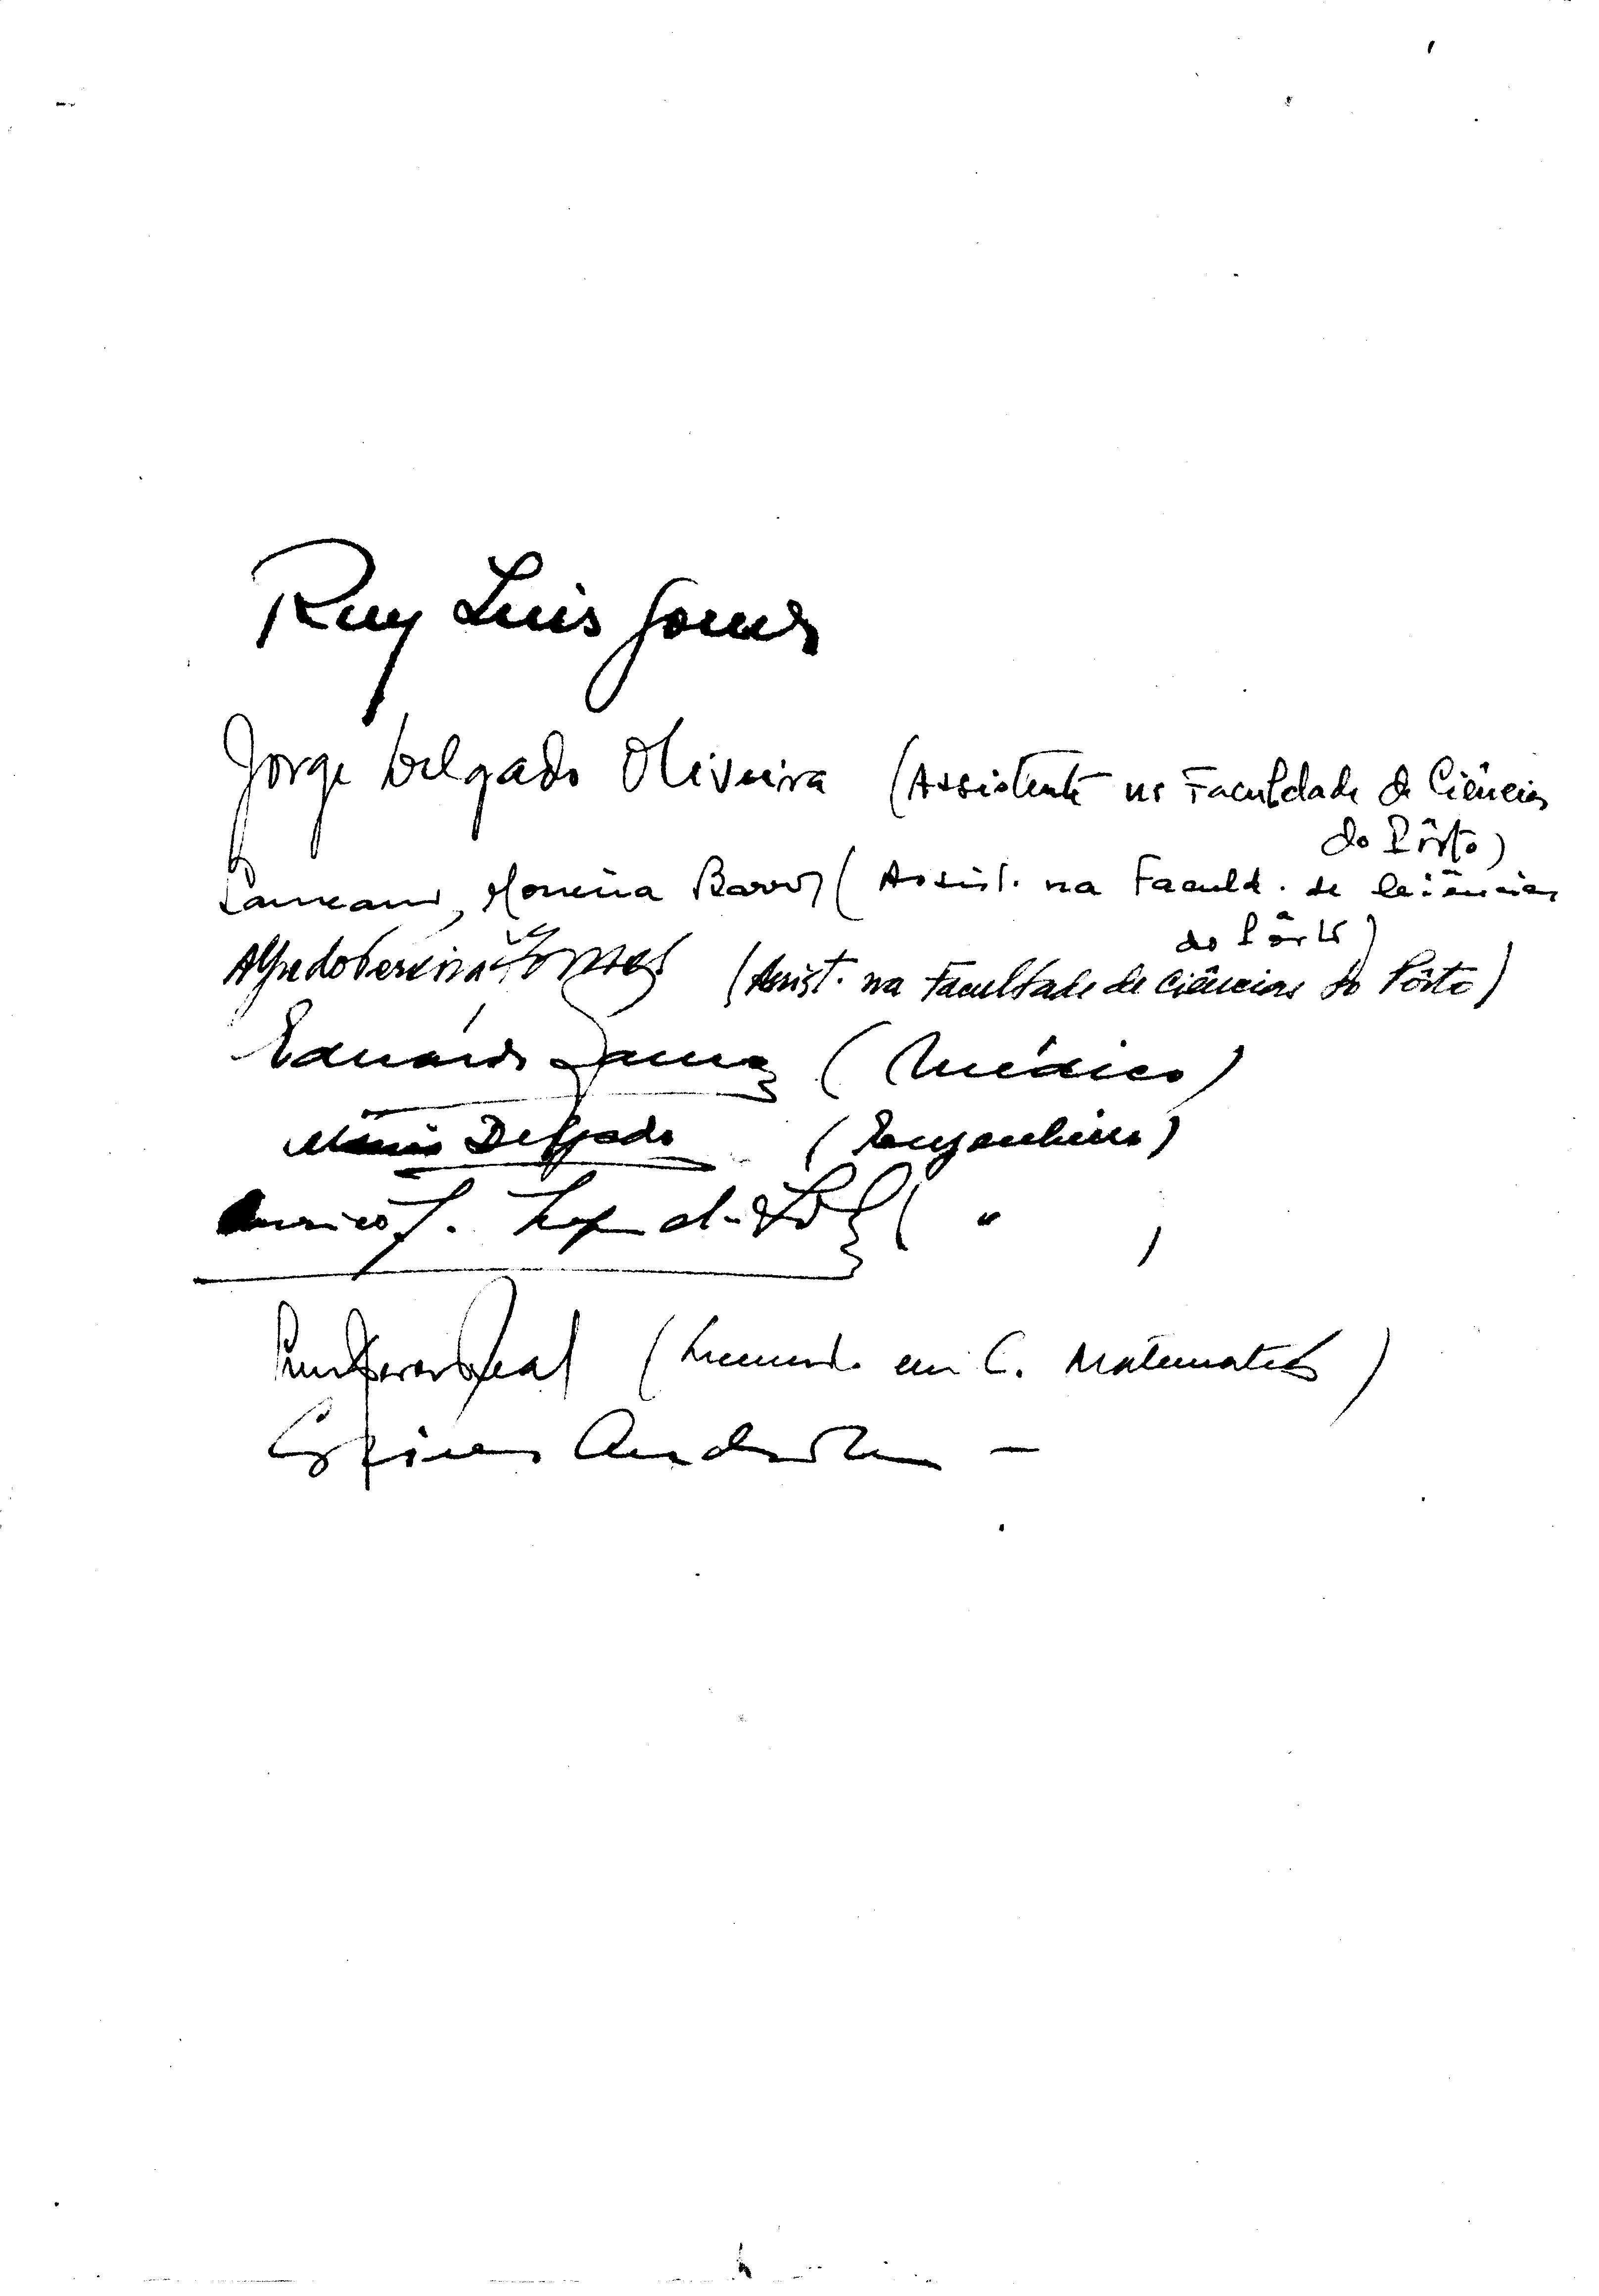 Ruy Luis Gomes
Jorge Delgado Oliveira (Assistente na Faculdade de Ciências
do Pôrto)
Laureano Moreira Barros (Assist. na Faculd. de Ciências
do Pôrto)
Alfredo Pereira Gomes (Assist. na Faculdade de Ciências do Pôrto)
Eduardo (Médico)
Mario Delgado (Engenheiro)
J. ( " )
Leal (Licenciado em C. Matematicas)